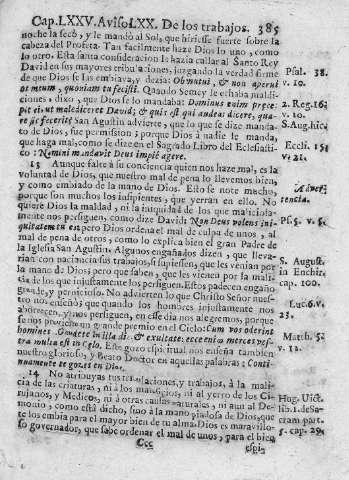 Cap.LXXV.Aviso LXX. De los trabajos. 385
noche la secò, y le mandò al Sol, que hiriesse fuerte sobre la
cabeza del Profeta. Tan facilmente haze Dios lo uno, como
lo otro. Esta santa consideracion le hazia callar al Santo Rey
David en sus mayores tribulaciones, juzgando la verdad firme
de que Dios se las embiava, y dezia: Obmutui, & non aperui
os meum, quoniam tu fecisti. Quando Semey le echaba maldi-
ciones, dixo, que Dios se lo mandaba: Dominus enim præce-
pit ei ut malediceret David; & quis est qui audeat dicere, qua-
re sic fecerit? San Agustin advierte, que lo que se dize manda-
to de Dios, fue permission; porque Dios à nadie le manda,
que haga mal, como se dize en el Sagrado Libro del Eclesiasti-
co: Nemini mandavit Deus impiè agere.
13 Aunque falte a su conciencia quien nos haze mal, es la
voluntad de Dios, que nuestro mal de pena lo llevemos bien,
y como embiado de la mano de Dios. Esto se note mucho,
porque son muchos los insipientes, que yerran en ello. No
quiere Dios la maldad, ni la iniquidad de los que maliciosa-
mente nos persiguen, como dize David: Non Deus volens ini-
quitatem tu es; pero Dios ordena el mal de culpa de unos, al
mal de pena de otros, como lo explica bien el gran Padre de
la Iglesia San Agustin. Algunos engañados dizen, que lleva-
rian con paciencia sus trabajos, si supiessen, que les venian por
la mano de Dios; pero que saben, que les vienen por la mali-
cia de los que injustamente los persiguen. Estos padecen engaño
grande, y pernicioso. No advierten lo que Christo Señor nues-
tro nos enseñò; que quando los hombres injustamente nos
aborrecen, y nos persiguen, en esse dia nos alegremos, porque
se nos previene un grande premio en el Cielo: Cum vos oderint
homines. Gaudete in illa die, & exultate: ecce enim merces ves-
tra multa est in Cœlo. Este gozo espiritual nos enseña tambien
nuestro glorioso, y Beato Doctor en aquellas palabras: Conti-
nuamente te gozes en Dios.
14 No atribuyas tus tribulaciones, y trabajos, à la mali-
cia de las criaturas, ni à los mengios, ni al yerro de los Ci-
rujanos, y Medicos, ni à otras causas naturales, ni aun al De-
monio, como està dicho, sino à la mano piadosa de Dios, que
te los embia para el mayor bien de tu alma. Dios es maravillo-
so governador, que sabe ordenar el mal de unos, para el bien
Ccc espi-
Psal. 38.
v. 10.
2. Reg. 16.
v. 10.
S. Aug. hic.
Eccli. 15.
v. 21.
Advertencia.
Ps. 5. v. 5.
S. August.
in Enchir.
cap. 100.
Luc. 6. v.
23.
Matth. 5.
v. 12.
Hug. Vict.
lib. 1. de Sa-
cram. part.
5. cap. 29.